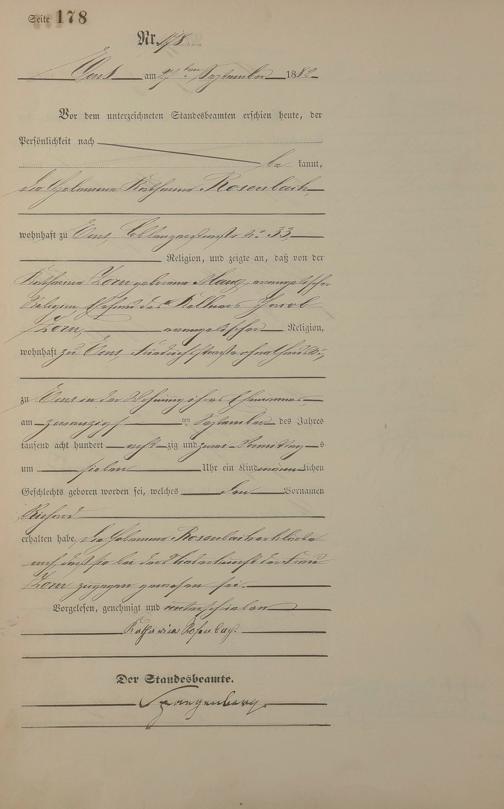 Seite 178
Nr. 178
Ems am 27ten September 1882
Vor dem unterzeichneten Standesbeamten erschien heute, der
Persönlichkeit nach
be kannt,
die Hebamme Katharina Rosenbach
wohnhaft zu Ems, Coblenzerstraße No 33,
Religion, und zeigte an, daß von der
Katharina Zorn geborene evangelischer
Religion Ehefrau des Kellners Jacob
Zorn, evangelischer Religion,
wohnhaft zu Ems, Friedrichstraße
zu Ems in der Wohnung ihres Ehemannes
am zwanzigsten September des Jahres
tausend acht hundert achtzig und zwei Vormittags
um sieben Uhr ein Kind männlichen
Geschlechts geboren worden sei, welches den Vornamen
Richard
erhalten habe. Die Hebamme Rosenbach erklärte
noch, daß sie bei der Niederkunft der Frau
Zorn zugegen gewesen sei.
Vorgelesen, genehmigt und unterschrieben
Katharina Rosenbach.
Der Standesbeamte.
Spangenberg